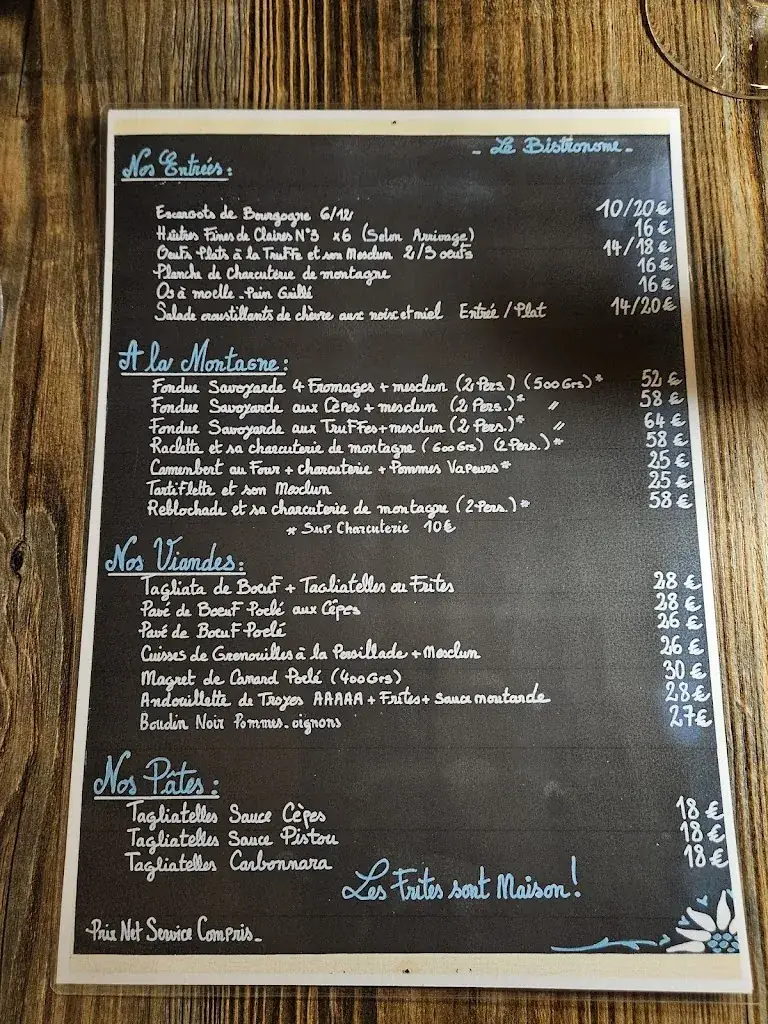 - Le Bistronome -
Nos Entrées :
Escargots de Bourgogne 6/12 10/20 €
Huîtres Fines de Claires N°3 x6 (Selon Arrivage) 16 €
Oeufs Plats à la Truffe et son Mesclun 2/3 oeufs 14/18 €
Planche de charcuterie de montagne 16 €
Os à moelle - Pain Grillé 16 €
Salade croustillants de chèvre aux noix et miel Entrée / Plat 14/20 €
A la Montagne :
Fondue Savoyarde 4 Fromages + mesclun (2 Pers.) (500 Grs)* 52 €
Fondue Savoyarde aux Cèpes + mesclun (2 Pers.)* " 58 €
Fondue Savoyarde aux Truffes + mesclun (2 Pers.)* " 64 €
Raclette et sa charcuterie de montagne (600 Grs) (2 Pers.)* 58 €
Camenbert au Four + charcuterie + Pommes Vapeurs* 25 €
Tartiflette et son Mesclun 25 €
Reblochade et sa charcuterie de montagne (2 Pers.)* 58 €
* Sup. Charcuterie 10 €
Nos Viandes :
Tagliata de Boeuf + Tagliatelles ou Frites 28 €
Pavé de Boeuf Poelé aux Cèpes 28 €
Pavé de Boeuf Poelé 26 €
Cuisses de Grenouilles à la Persillade + Mesclun 26 €
Magret de Canard Poelé (400 Grs) 30 €
Andouillette de Troyes AAAAA + Frites + Sauce moutarde 28 €
Boudin Noir Pommes - oignons 27 €
Nos Pâtes :
Tagliatelles Sauce Cèpes 18 €
Tagliatelles Sauce Pistou 18 €
Tagliatelles Carbonnara 18 €
Les Frites sont Maison !
Prix Net Service Compris -